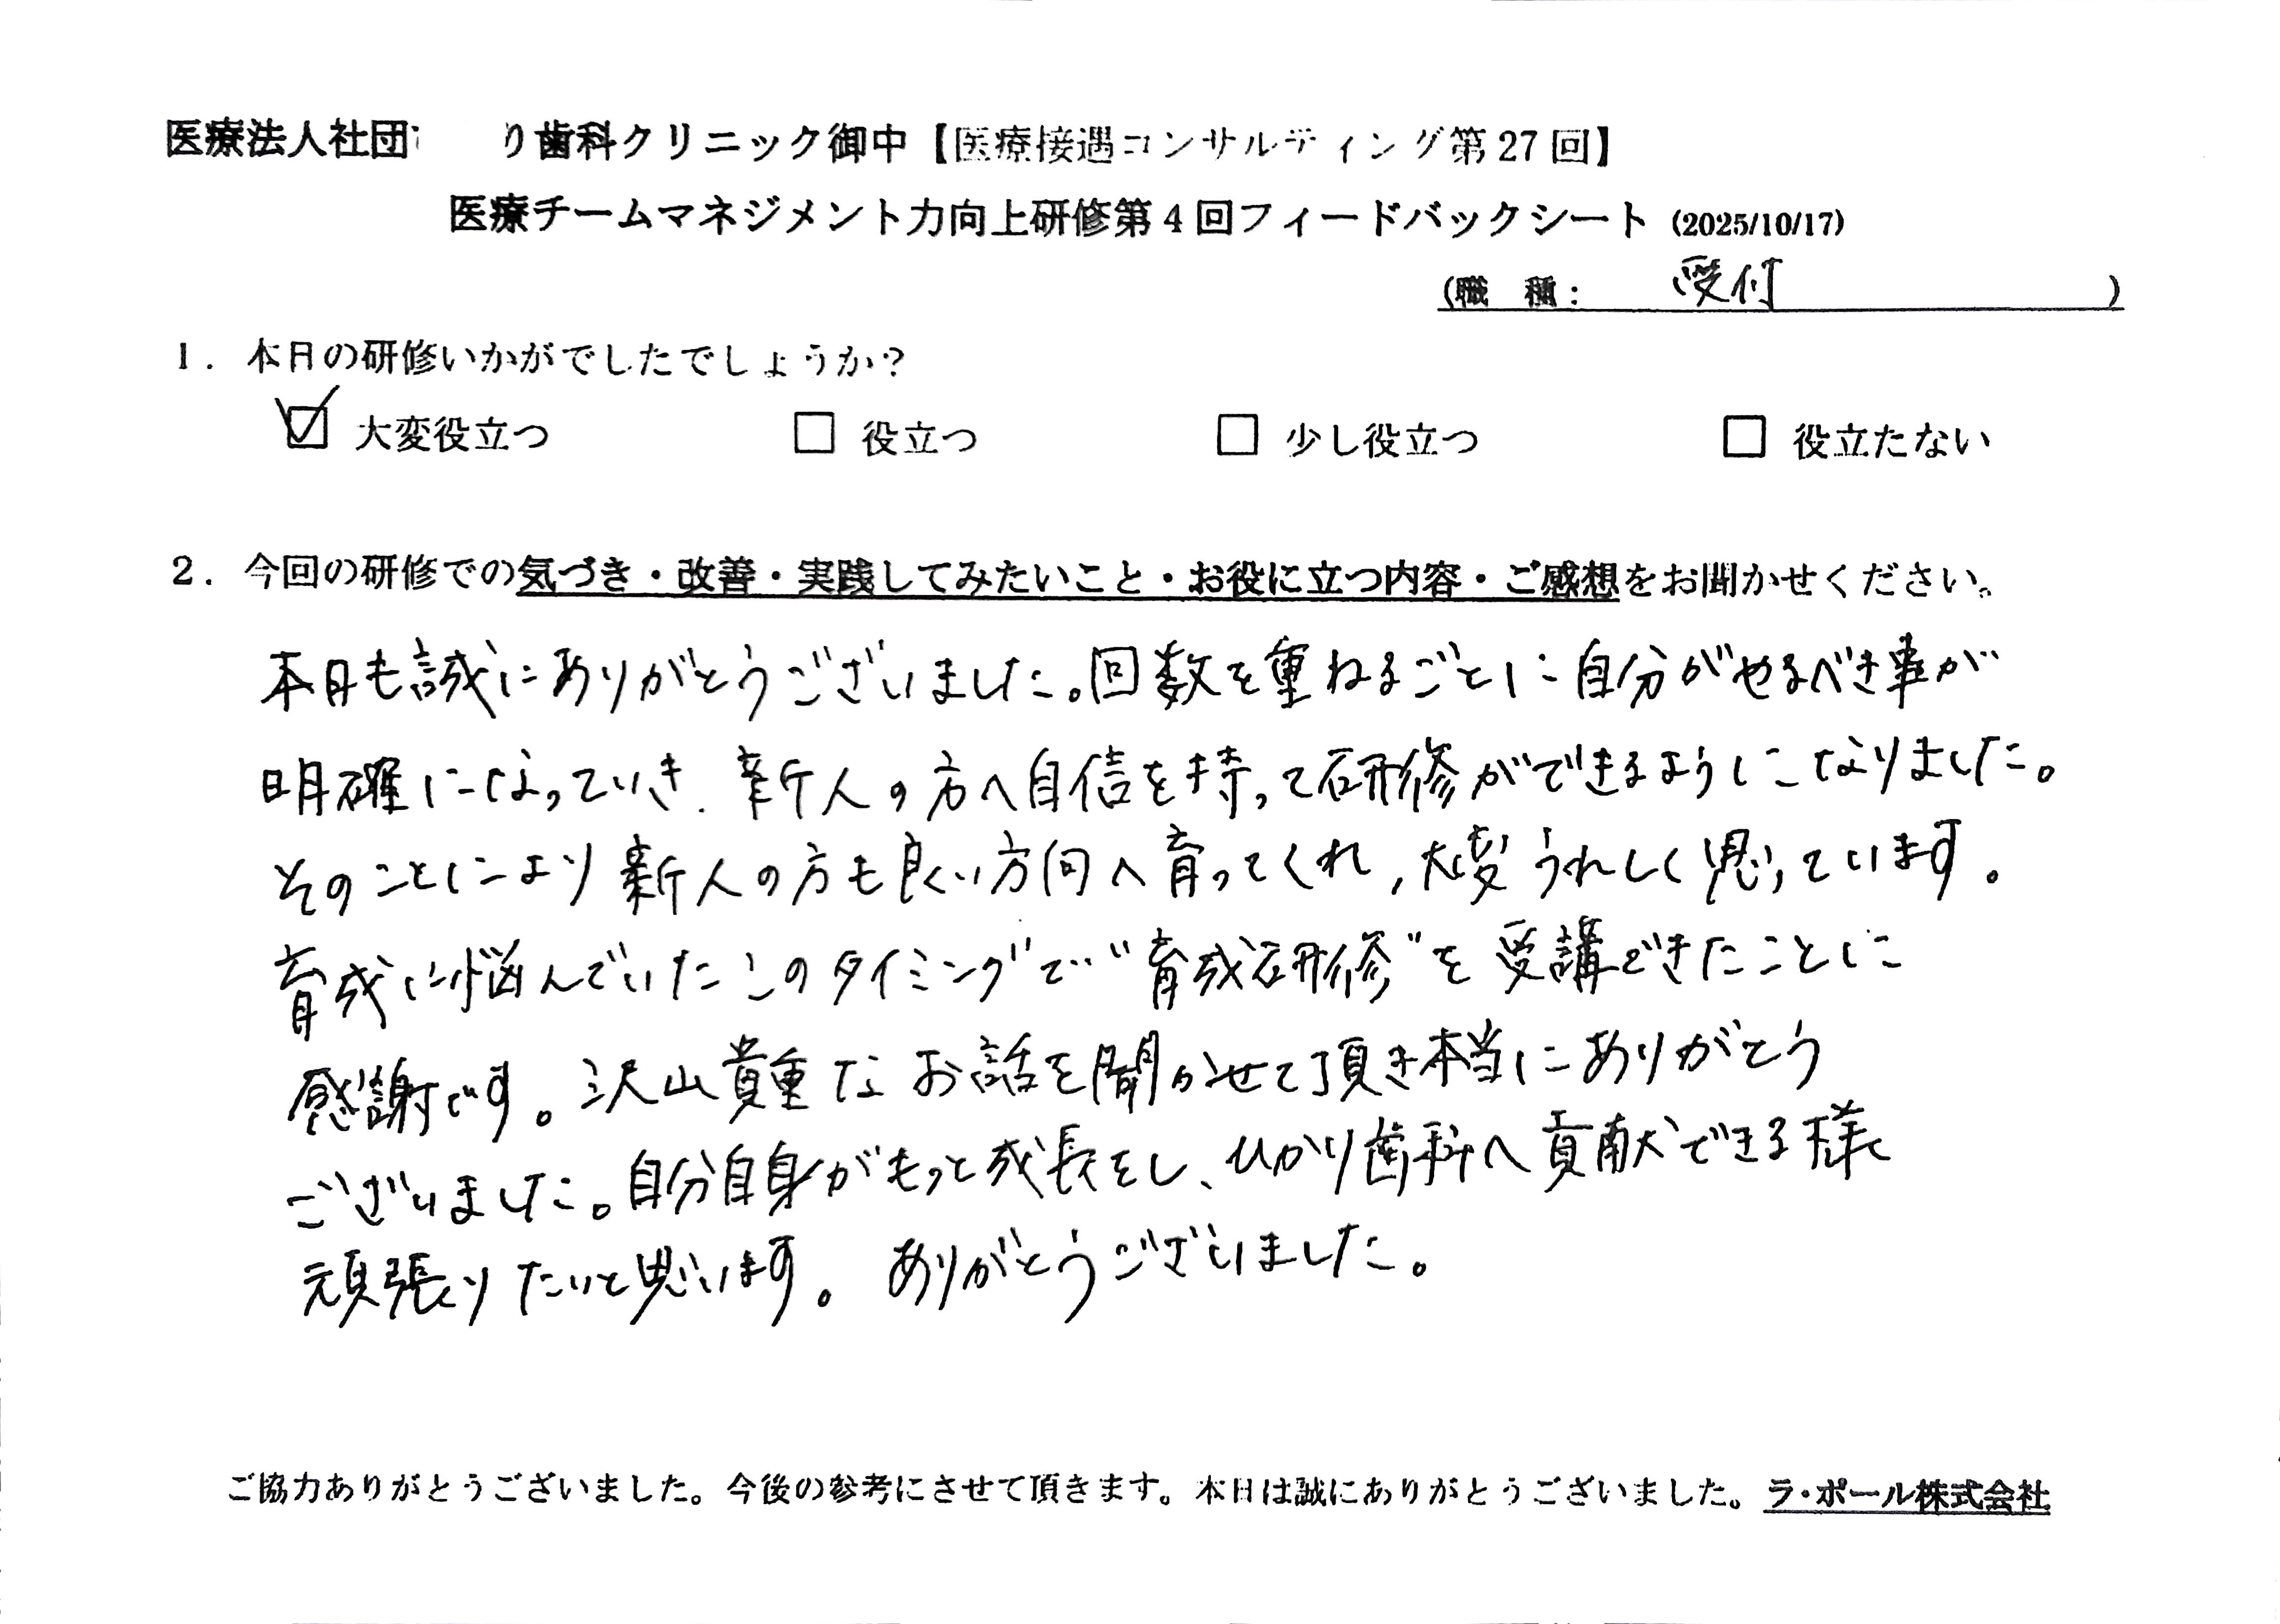 医療法人社団 り歯科クリニック御中【医療接遇コンサルティング第27回】
医療チームマネジメント力向上研修第4回フィードバックシート (2025/10/17)
(職 種: 受付 )
1. 本日の研修いかがでしたでしょうか?
☑ 大変役立つ □ 役立つ □ 少し役立つ □ 役立たない
2. 今回の研修での気づき・改善・実践してみたいこと・お役に立つ内容・ご感想をお聞かせください。
本日も誠にありがとうございました。回数を重ねるごとに自分がやるべき事が
明確になっていき、新人の方へ自信を持って研修ができるようになりました。
そのことにより新人の方も良い方向へ育ってくれ、大変うれしく思っています。
育成に悩んでいたこのタイミングで"育成研修"を受講できたことに
感謝です。沢山貴重なお話を聞かせて頂き本当にありがとう
ございました。自分自身がもっと成長をし、ひかり歯科へ貢献できる様
頑張りたいと思います。 ありがとうございました。
ご協力ありがとうございました。今後の参考にさせて頂きます。本日は誠にありがとうございました。ラ・ポール株式会社